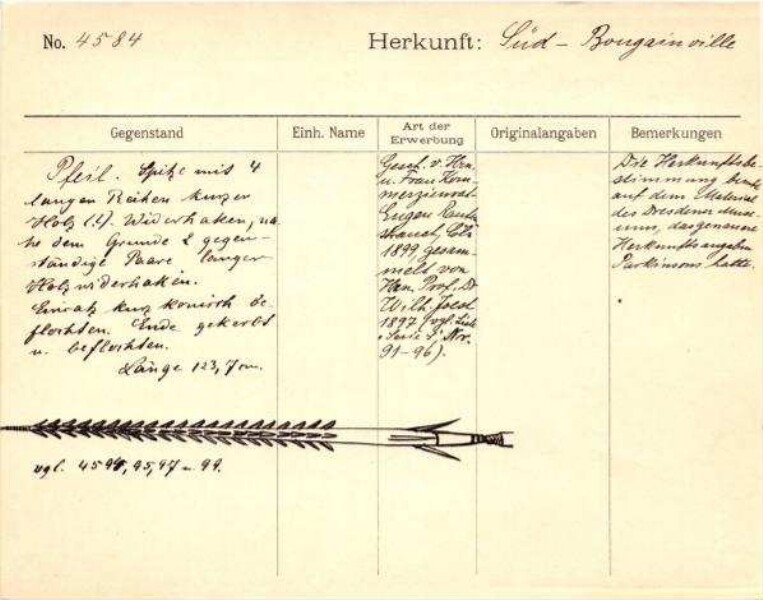 No. 4584
Herkunft: Süd - Bougainville
Gegenstand
Einh. Name
Art der Erwerbung
Originalangaben
Bemerkungen
Pfeil. Spitze mit 4
langen Reihen kurzer
Holz (?) Widerhaken, na-
he dem Grunde 2 gegen-
ständige Paare langer
Holzwiderhaken.
Einsatz kurz konisch be-
flochten. Ende gekerbt
u. beflochten.
Länge 123,7 cm.
Gesch. v. Hrn.
u. Frau Kom-
merzienrat
Eugen Rauten-
strauch, Cöln
1899, gesam-
melt von
Hrn. Prof. Dr
Wilh. Joest
1897 (vgl. Liste
Serie S, Nor.
91-96).
Die Herkunftsbe-
stimmung beruht
auf dem Material
des Dresdener Muse-
ums, das genauere
Herkunftsangaben
Parkinsons hatte.
vgl. 4594, 95, 97 u. 99.